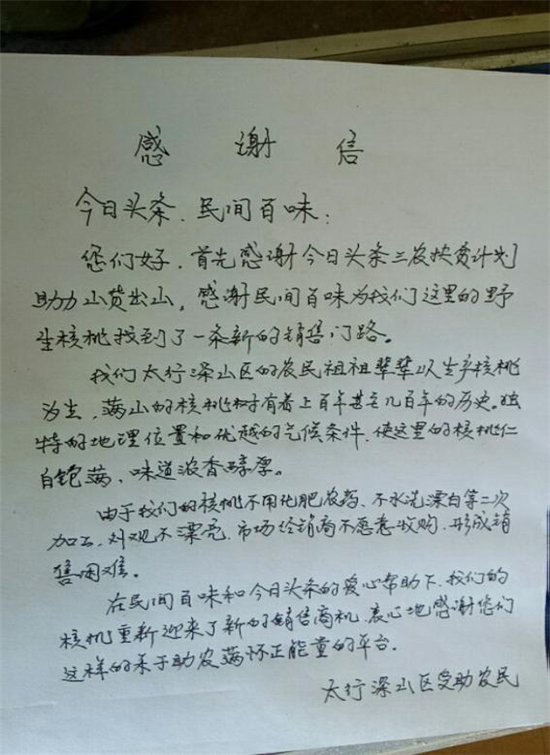 感谢信
今日头条、民间百味：
您们好，首先感谢今日头条三农扶贫计划
助力山货出山，感谢民间百味为我们这里的野
生核桃找到了一条新的销售门路。
我们太行深山区的农民祖祖辈辈以生产核桃
为生，满山的核桃树有着上百年甚至几百年的历史。独
特的地理位置和优越的气候条件，使这里的核桃仁
白饱满，味道浓香醇厚。
由于我们的核桃不用化肥农药、不水洗漂白等二次
加工，外观不漂亮，市场经销商不愿意收购，形成销
售困难。
在民间百味和今日头条的爱心帮助下，我们的
核桃重新迎来了新的销售商机，衷心地感谢您们
这样的乐于助农满怀正能量的平台。
太行深山区受助农民